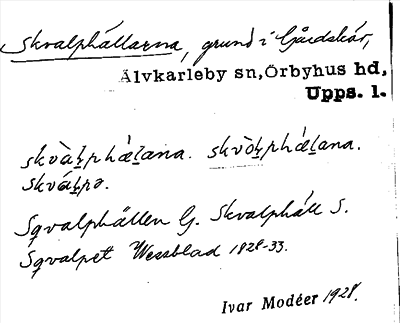 Skvalphällarna, grund i Gårdskär,
Älvkarleby sn, Örbyhus hd,
Upps. l.
skvàḷphǽḷana. skvòḷphǽḷana.
skváḷpə.
Sqvalphällen G. Skvalphäll S.
Sqvalpet Wessblad 1828-33.
Ivar Modéer 1928.